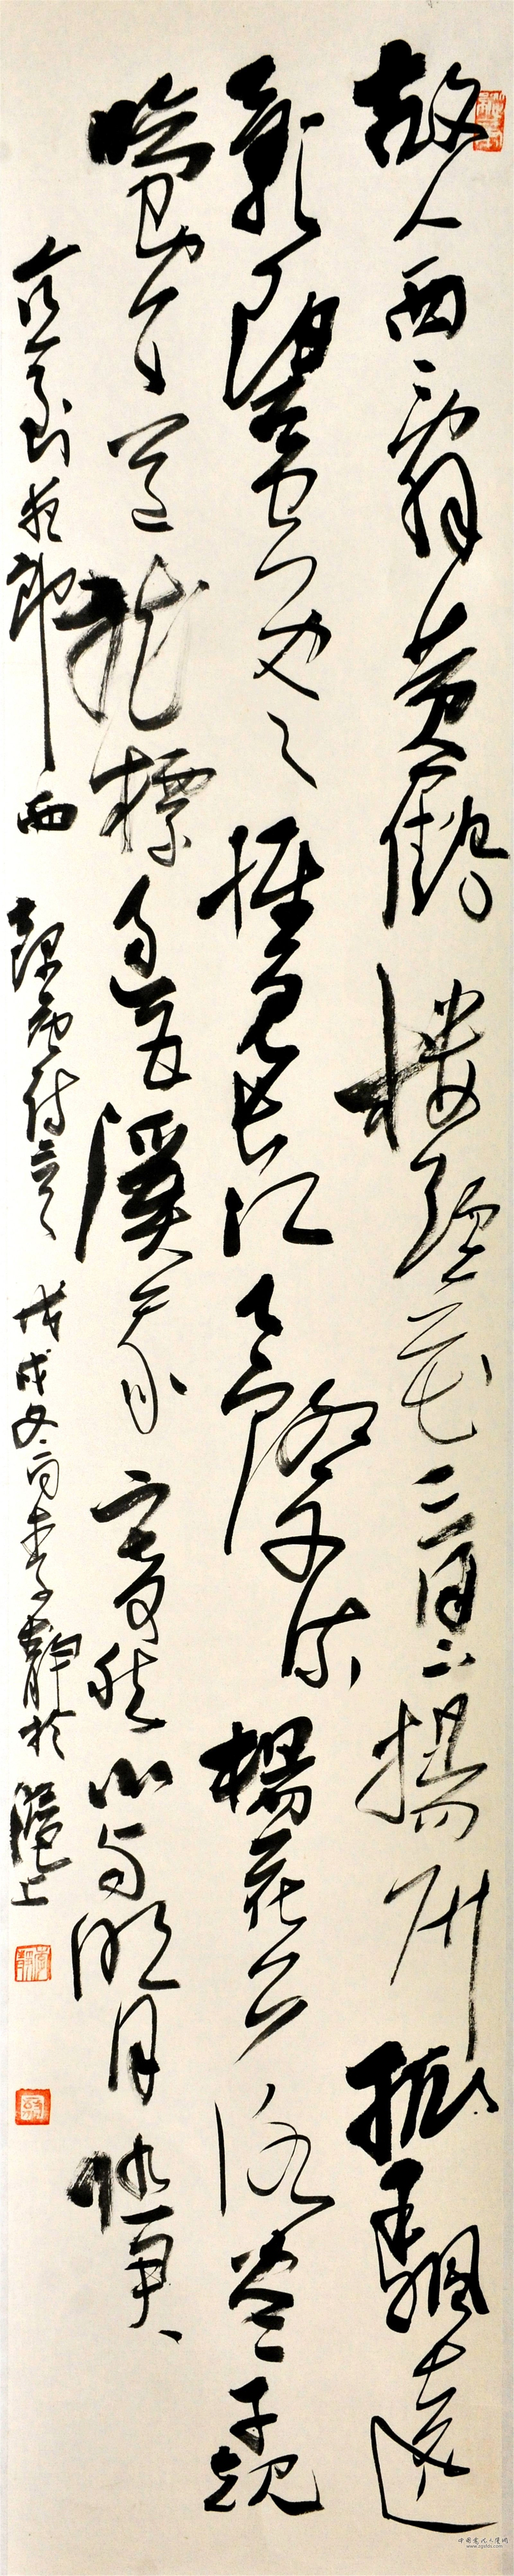 故人西辭黃鶴樓煙花三月下揚州孤帆遠
影碧空盡惟見長江天際流楊花落盡子規
啼聞道龍標過五溪我寄愁心與明月隨君
直到夜郎西 錄唐詩二首 戊戌冬月李靜於滬上